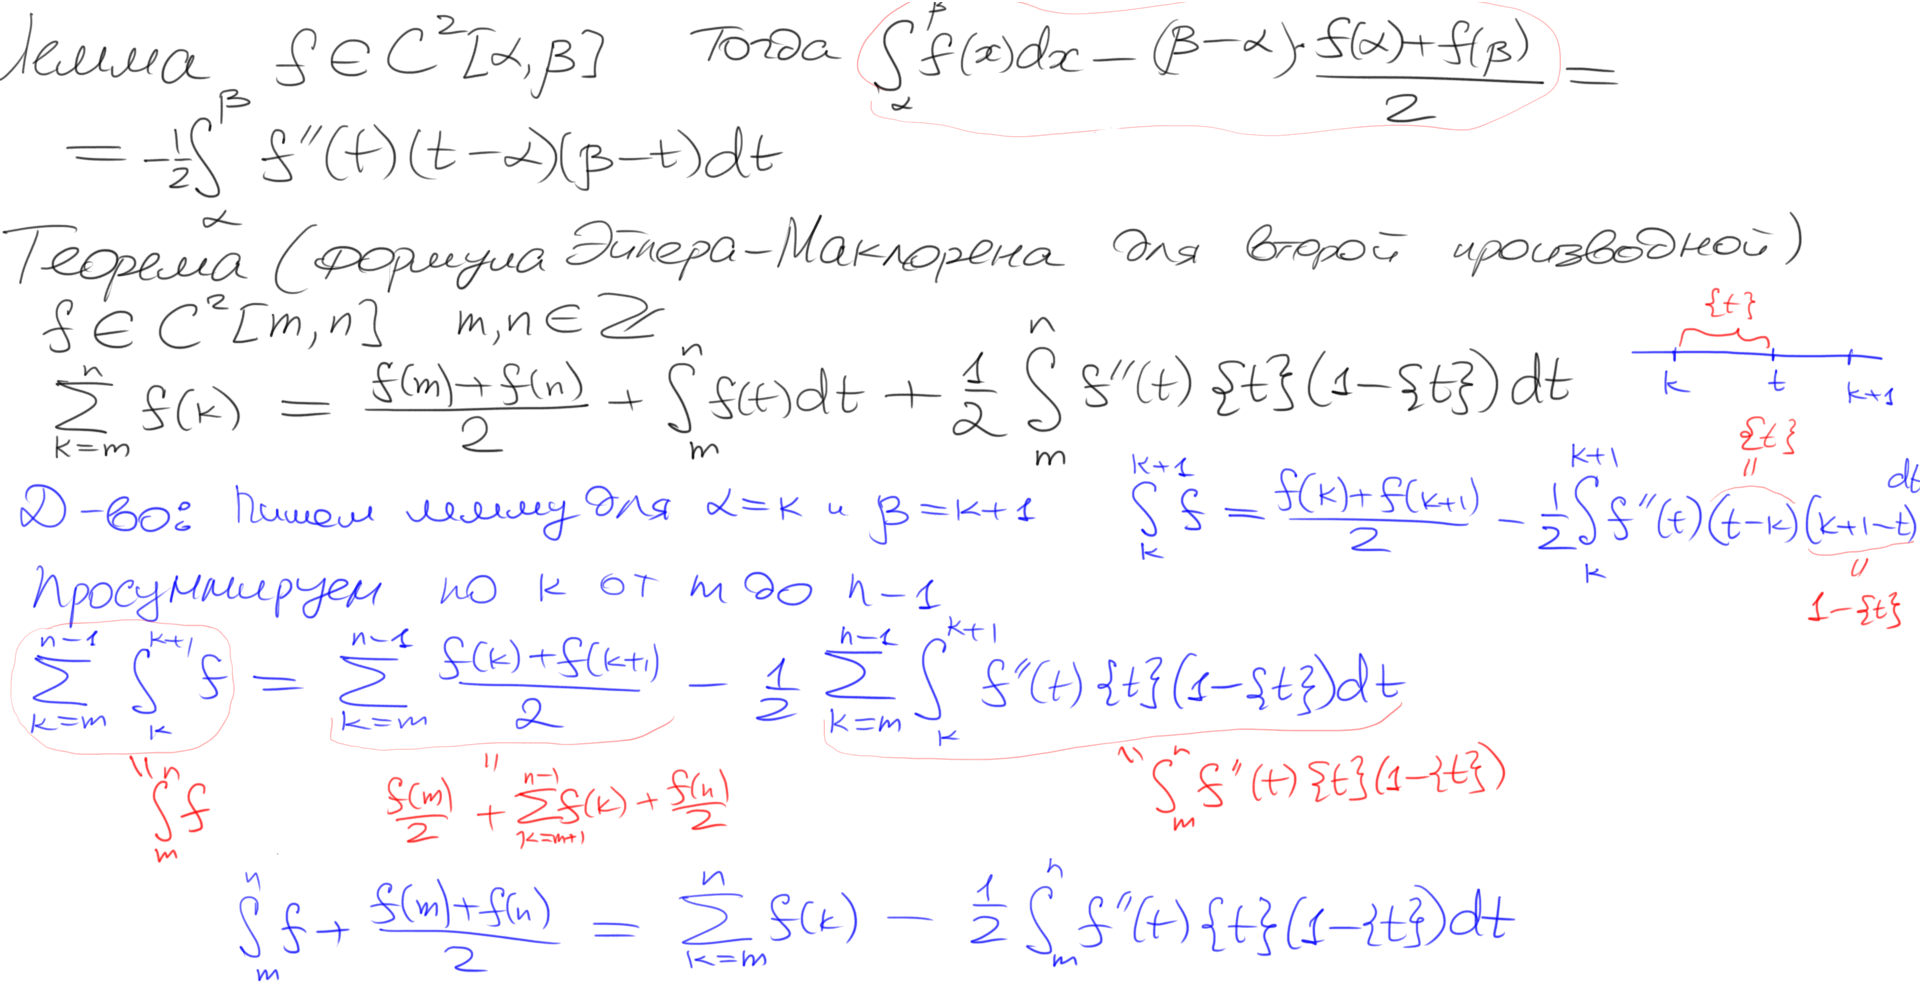 Лемма f ∈ C²[α, β] Тогда ∫_α^β f(x)dx − (β−α)· (f(α)+f(β))/2 =
= −1/2 ∫_α^β f''(t)(t−α)(β−t)dt
Теорема (формула Эйлера-Маклорена для второй производной)
f ∈ C²[m,n] m,n ∈ ℤ
∑_{k=m}^n f(k) = (f(m)+f(n))/2 + ∫_m^n f(t)dt + 1/2 ∫_m^n f''(t){t}(1−{t})dt
{t}
k t k+1
Д-во: Пишем лемму для α=k и β=k+1 ∫_k^{k+1} f = (f(k)+f(k+1))/2 − 1/2 ∫_k^{k+1} f''(t)(t−k)(k+1−t) dt
{t}
"
"
1−{t}
Просуммируем по k от m до n−1
∑_{k=m}^{n−1} ∫_k^{k+1} f = ∑_{k=m}^{n−1} (f(k)+f(k+1))/2 − 1/2 ∑_{k=m}^{n−1} ∫_k^{k+1} f''(t){t}(1−{t})dt
" " "
∫_m^n f f(m)/2 + ∑_{k=m+1}^{n−1} f(k) + f(n)/2 ∫_m^n f''(t){t}(1−{t})
∫_m^n f + (f(m)+f(n))/2 = ∑_{k=m}^n f(k) − 1/2 ∫_m^n f''(t){t}(1−{t})dt